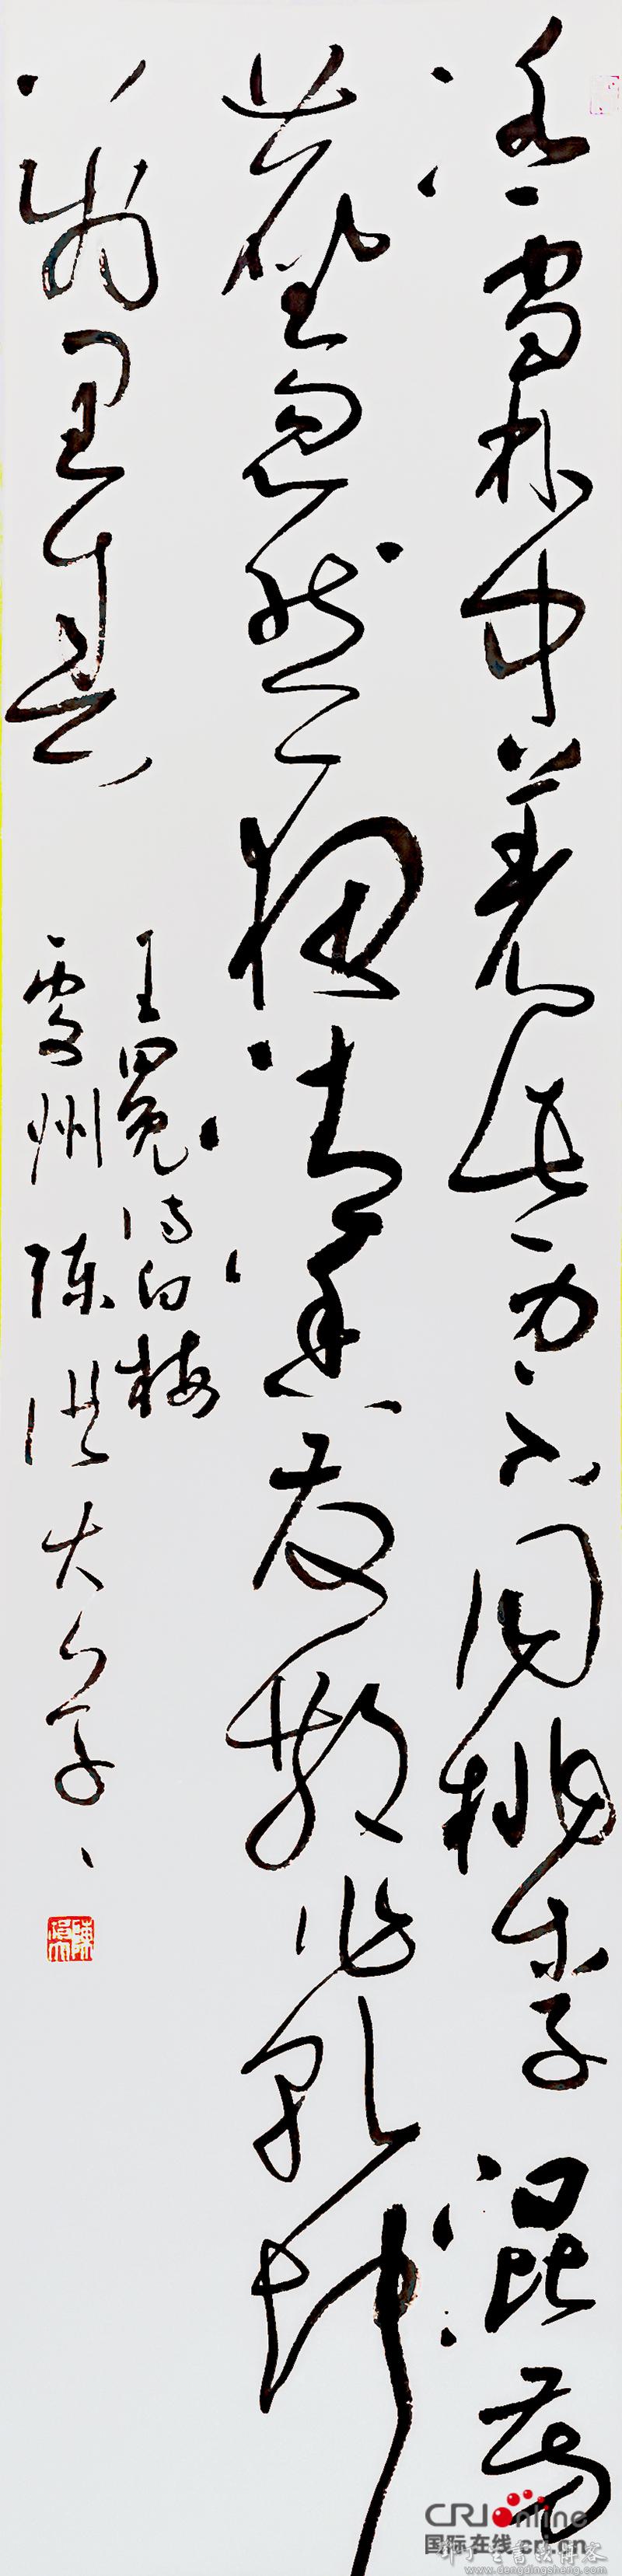 冰雪林中著此身不同桃李混芳
塵忽然一夜清香发散作乾坤
萬里春
王冕诗白梅
州陈洪大
CRI online
国际在线 cri.cn
邓丁生书法博客
www.dengdingsheng.com